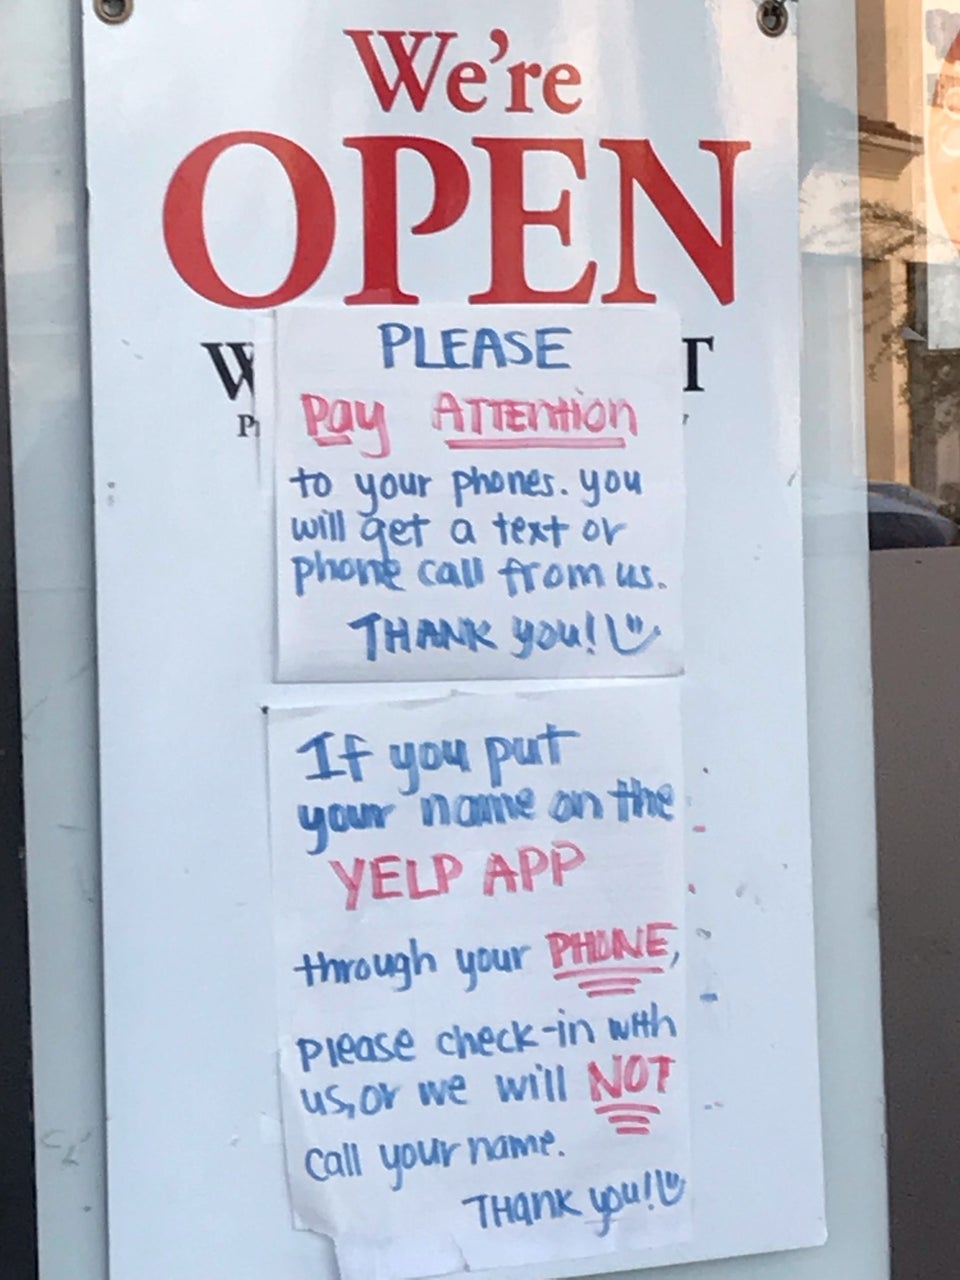 We're
OPEN
PLEASE
Pay ATTENtion
to your phones. you
will get a text or
phone call from us.
THANK you!
If you put
your name on the
YELP APP
through your PHONE,
please check-in with
us, or we will NOT
call your name.
THank you!